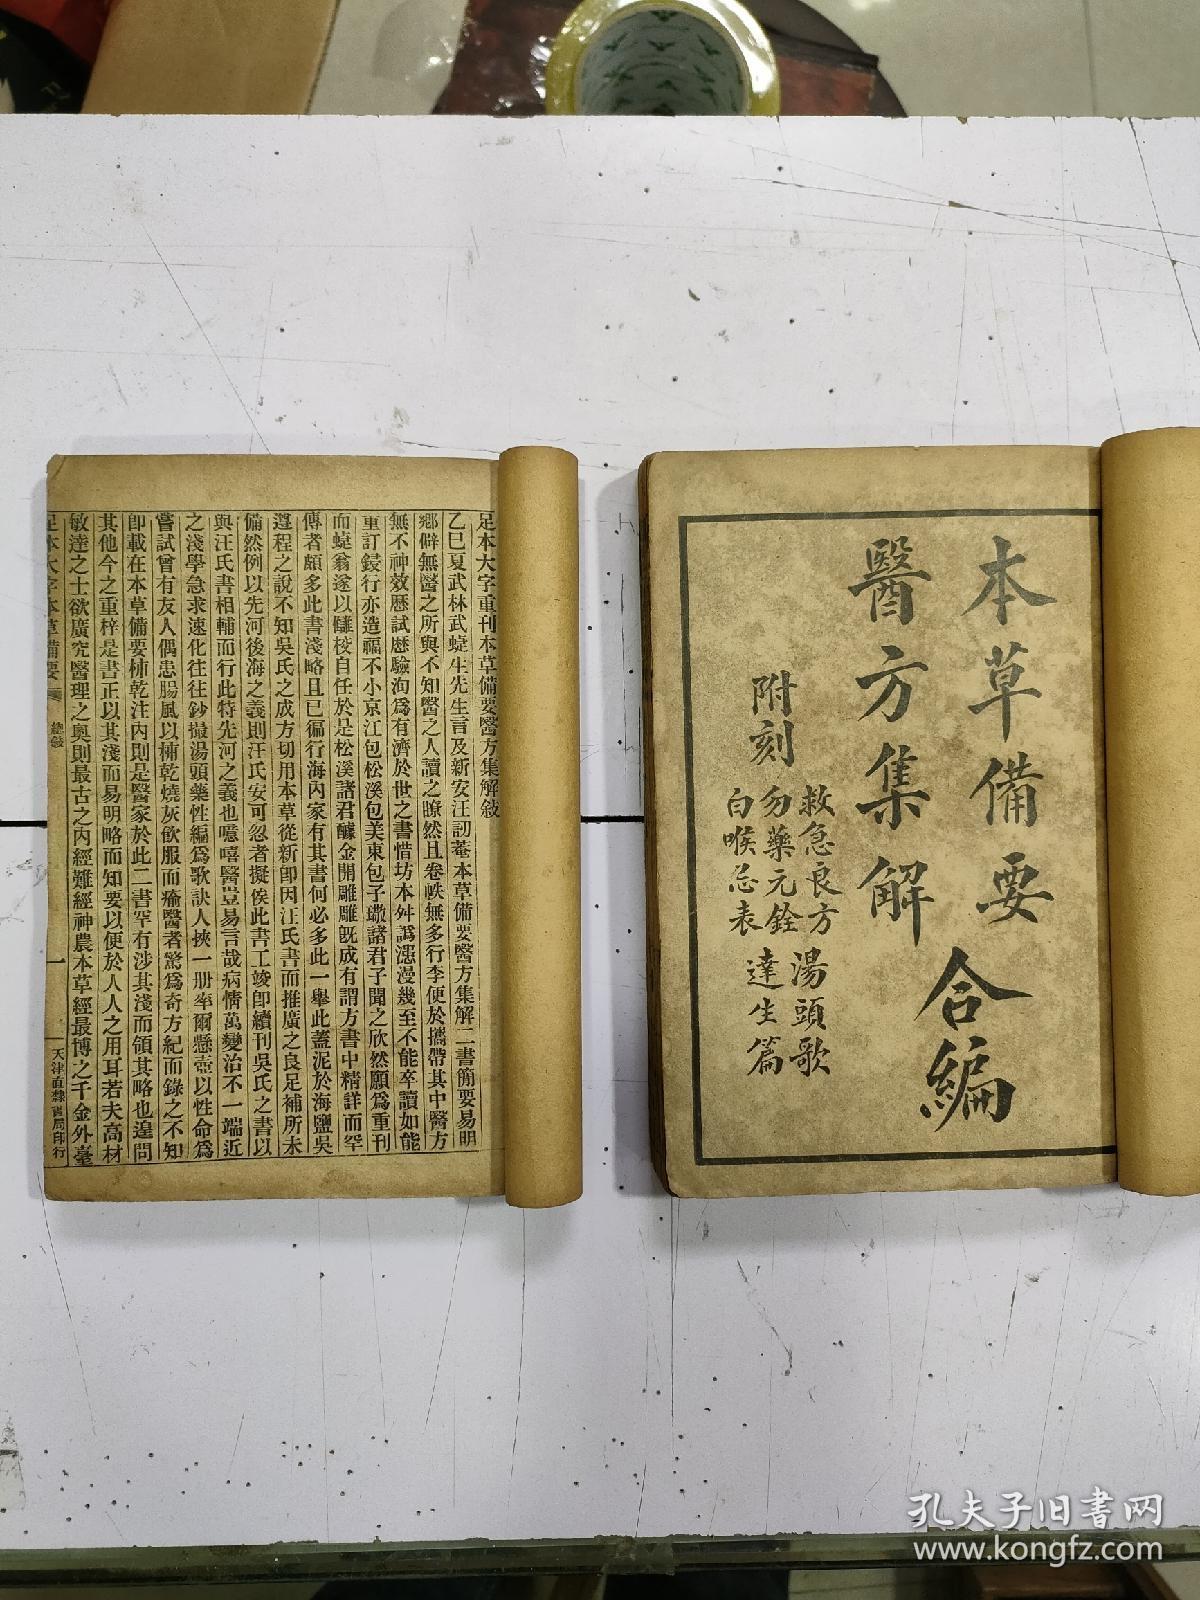 本草備要
醫方集解
合編
附刻
救急良方
勿藥元銓
白喉忌表
湯頭歌
達生篇
足本大字重刊本草備要醫方集解敍
乙巳夏武林武蜨生先生言及新安汪訒菴本草備要醫方集解二書簡要易明
鄉僻無醫之所與不知醫之人讀之暸然且卷帙無多行李便於攜帶其中醫方
無不神效歷試歷驗洵爲有濟於世之書惜坊本舛譌漫漫幾至不能卒讀如能
重訂鋟行亦造福不小京江包松溪包美東包子璥諸君子聞之欣然願爲重刊
而蜨翁遂以讎校自任於是松溪諸君醵金開雕雕旣成有謂方書中精詳而罕
傳者頗多此書淺略且已徧行海內家有其書何必多此一舉此蓋泥於海鹽吳
遵程之說不知吳氏之成方切用本草從新卽因汪氏書而推廣之良足補所未
備然例以先河後海之義則汪氏安可忽者擬俟此書工竣卽續刊吳氏之書以
與汪氏書相輔而行此特先河之義也噫嘻醫豈易言哉病情萬變治不一端近
之淺學急求速化往往鈔撮湯頭藥性編爲歌訣人挾一册率爾懸壺以性命爲
嘗試曾有友人偶患腸風以柿乾燒灰飲服而瘉醫者驚爲奇方紀而錄之不知
卽載在本草備要柿乾注內則是醫家於此二書罕有涉其淺而領其略也遑問
其他今之重梓是書正以其淺而易明略而知要以便於人人之用耳若夫高材
敏達之士欲廣究醫理之奧則最古之內經難經神農本草經最博之千金外臺
足本大字本草備要
總敍
一
天津直隸書局印行
孔夫子旧书网
www.kongfz.com